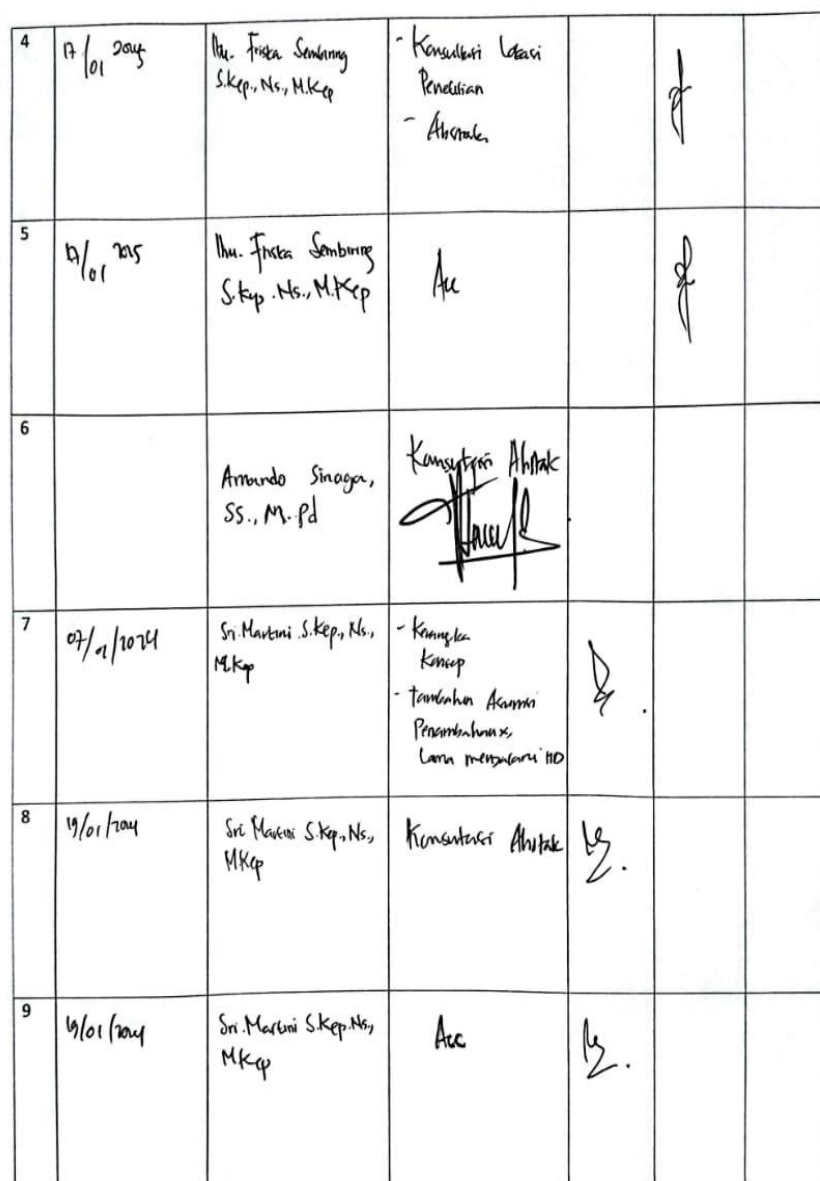 4
17/01 2025
Ibu. Friska Sembiring
S.Kep., Ns., M.Kep
- Konsultasi Lokasi
Penelitian
- Abstrak
5
17/01 2025
Ibu. Friska Sembiring
S.Kep. Ns., M.Kep
Acc
6
Amando Sinaga,
SS., M.Pd
Konsultasi Abstrak
7
Sri Martini S.Kep., Ns.,
M.Kep
- Kerangka
Konsep
- tambahan Asumsi
Lama menjalani HD
8
19/01/2024
Sri Martini S.Kep., Ns.,
MKep
Konsultasi Abstrak
9
19/01/2024
Sri. Martini S.Kep.Ns,
MKep
Acc